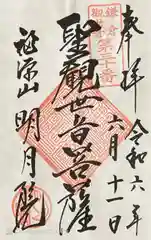 奉拝
令和六年
六月十一日
聖観世音菩薩
福源山
明月院
鎌倉
第三十番